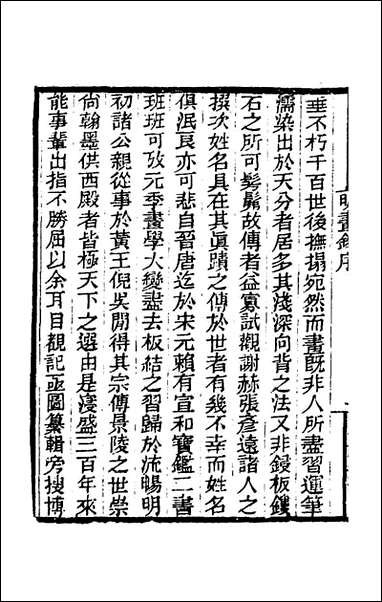 垂不朽千百世後撫搨宛然而畫既非人所盡習運筆
濡染出於天分者居多其淺深向背之法又非鋟板鐫
石之所可髣髴故傳者益寡試觀謝赫張彥遠諸人之
撰次姓名具在其眞蹟之傳於世者有幾不幸而姓名
俱泯良亦可悲自晉唐迄於宋元賴有宣和寶鑑二書
班班可攷元季畫學大變盡去板結之習歸於流暢明
初諸公親從事於黃王倪吳閒得其宗傳景陵之世崇
尙翰墨供西殿者皆極天下之選由是寖盛三百年來
能事輩出指不勝屈以余耳目覩記亟圖纂輯旁搜博
明畫錄序
一